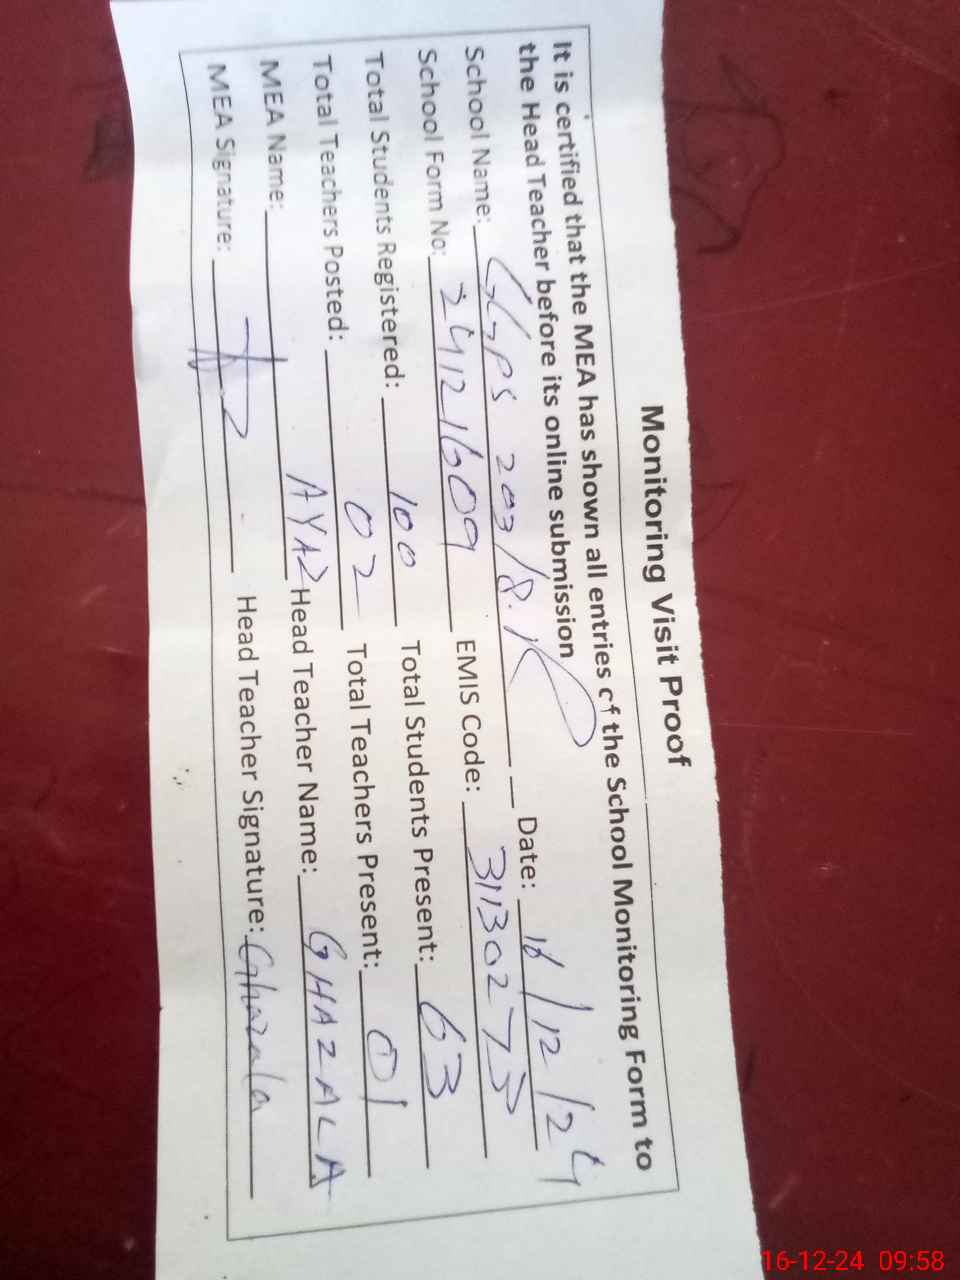 Monitoring Visit Proof
It is certified that the MEA has shown all entries of the School Monitoring Form to
the Head Teacher before its online submission
School Name: GGPS 203/8.R Date: 16/12/24
School Form No: 2412 1609 EMIS Code: 31130275
Total Students Registered: 100 Total Students Present: 63
Total Teachers Posted: 02 Total Teachers Present: 01
MEA Name: AYAZ Head Teacher Name: GHAZALA
MEA Signature: Head Teacher Signature: Ghazala
16-12-24 09:58